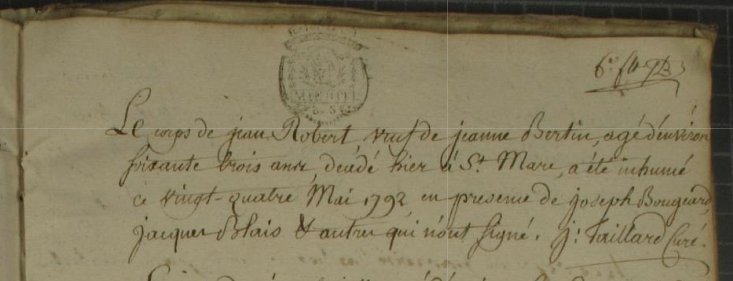 6e ft
Le corps de jean Robert, veuf de jeanne Bertin, agé d'environ
soixante trois ans, decedé hier à St. Marc, a été inhumé
ce vingt-quatre Mai 1792 en presence de joseph Bougeard,
jacques Blais & autres qui n'ont signé. j. Taillard Curé.